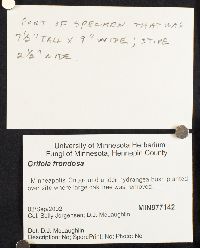 PART OF SPECIMEN THAT WAS
7½" TALL X 9" WIDE; STIPE
2½" WIDE.
University of Minnesota Herbarium
Fungi of Minnesota, Hennepin County
Grifola frondosa
Minneapolis. under hydrangea bush planted
over site where large oak tree was removed.
03/Sep/2002
MIN877142
Col. Sally Jorgensen; D.J. McLaughlin
Det. D.J. McLaughlin
Description: No; Spore Print: No; Photo: No